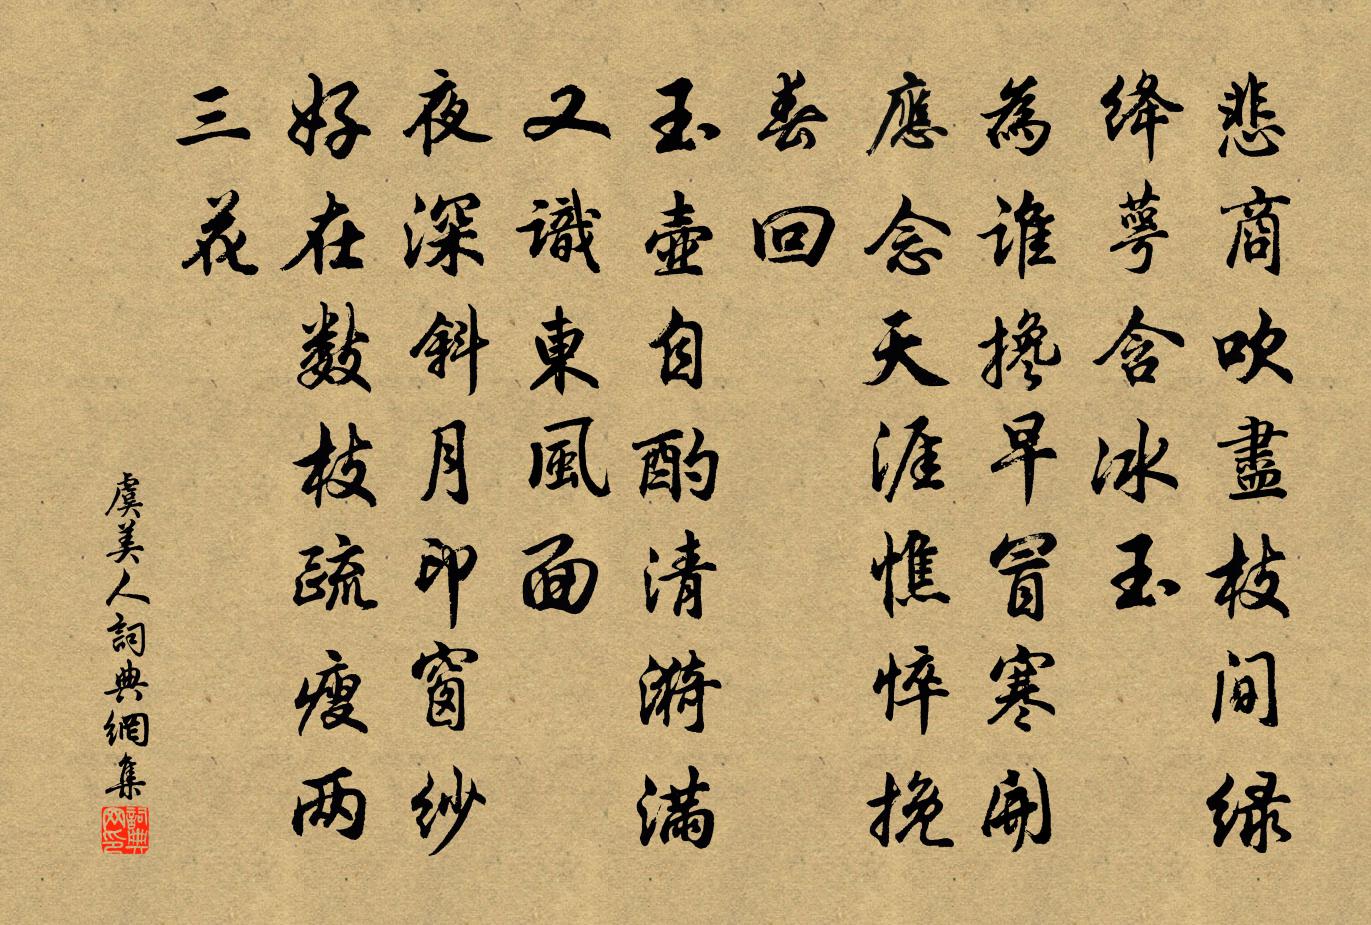 悲商吹盡枝間緑
絳萼含冰玉
為誰攙早冒寒開
應念天涯憔悴挽
春回
玉壺自酌清漪滿
又識東風面
夜深斜月印窗紗
好在數枝疏瘦两
三花
虞美人詞典網集
詞典
网印